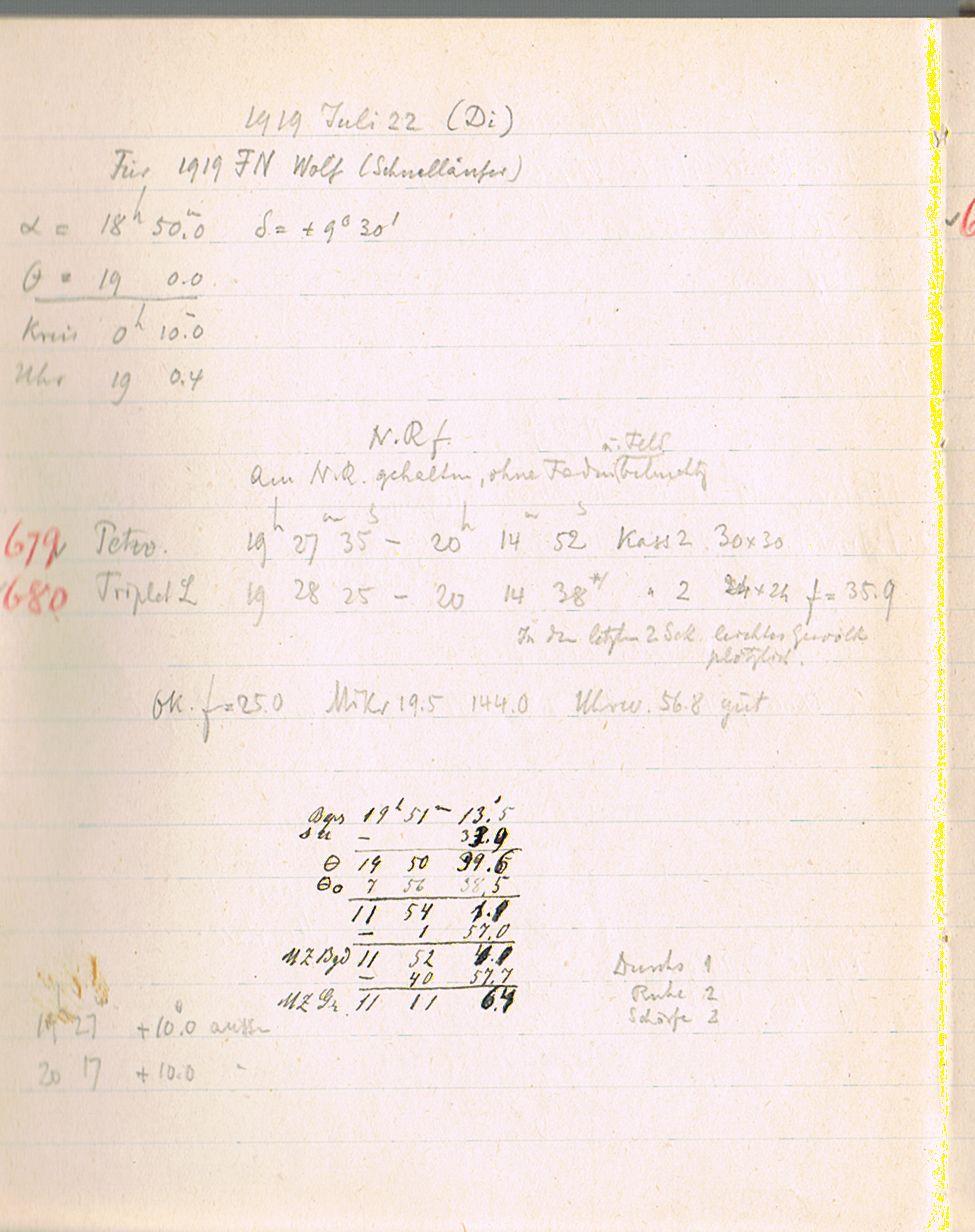 1919 Juli 22 (Di)
Für 1919 FN Wolf (Schnelläufer)
α = 18h 50.m0 δ = + 9° 30'
θ = 19 0.0
Kreis 0h 10.m0
Uhr 19 0.4
N.R f.
u. Feld
Am N.R. gehalten, ohne Faden
679 Petzv. 19h 27m 35s – 20h 14m 52s Kass 2 30×30
680 Triplet L 19 28 25 – 20 14 38*) " 2 24×24 f = 35.9
In den letzten 2 Sek. leichtes Gewölk
plötzlich.
Ok. f = 25.0 Mikr 19.5 144.0 Uhrw. 56.8 gut
19h 51m 13.s5
Δu –
θ 19 50 39.6
θo 7 56 38.5
11 54 1.1
– 1 57.0
MZ Bgd 11 52
– 40 57.7
MZ Gr. 11 11 6.4
Durchs 1
Ruhe 2
19 27 +10.°0 aussen
20 17 +10.0 "